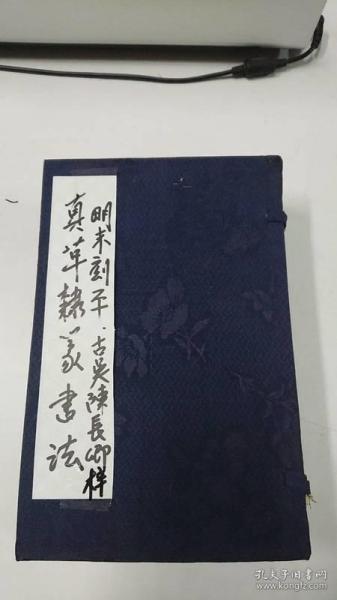 明末刻本、古吴陳長卿梓
真草隸篆書法
孔夫子旧书网
www.kongfz.com